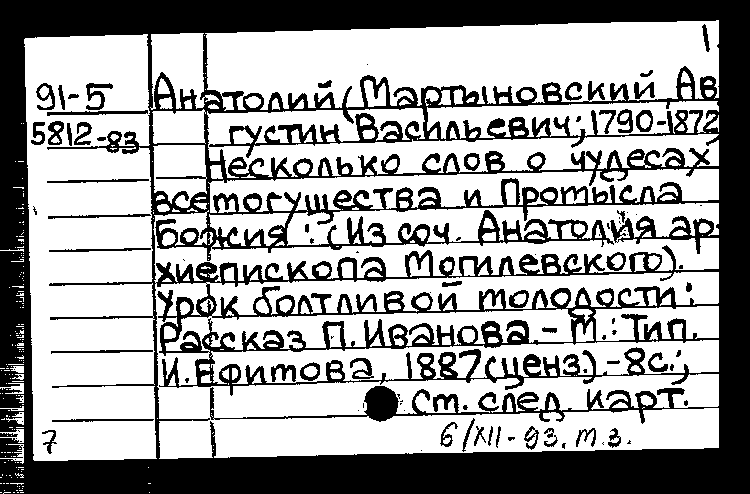 1.
91-5 Анатолий (Мартыновский, Ав
5812-83 густин Васильевич; 1790-1872
Несколько слов о чудесах
всемогущества и Промысла
Божия : (Из соч. Анатолия ар-
хиепископа Могилевского).
Урок болтливой молодости:
Рассказ П. Иванова. - М.: Тип.
И. Ефимова, 1887 (ценз.). - 8с.;
См. след. карт.
7 6/XII-93. т.з.